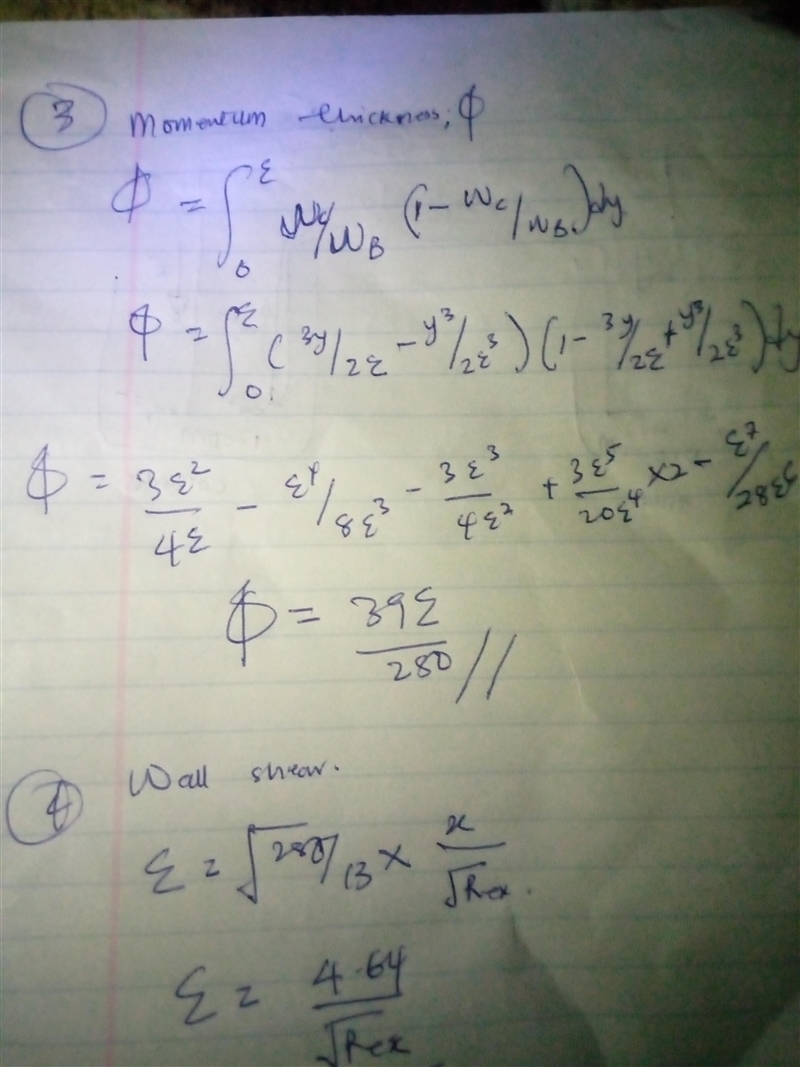 3 Momentum thickness, ϕ
ϕ = ∫₀^ε Wc/WB (1 - Wc/WB) dy
ϕ = ∫₀^ε (3y/2ε - y³/2ε³) (1 - 3y/2ε + y³/2ε³) dy
ϕ = 3ε²/4ε - ε⁴/8ε³ - 3ε³/4ε² + 3ε⁵/20ε⁴ ×2 - ε⁷/28ε⁶
ϕ = 39ε/280 //
4 Wall shear.
ε = √280/13 × x/√Rex.
ε = 4.64/√Rex